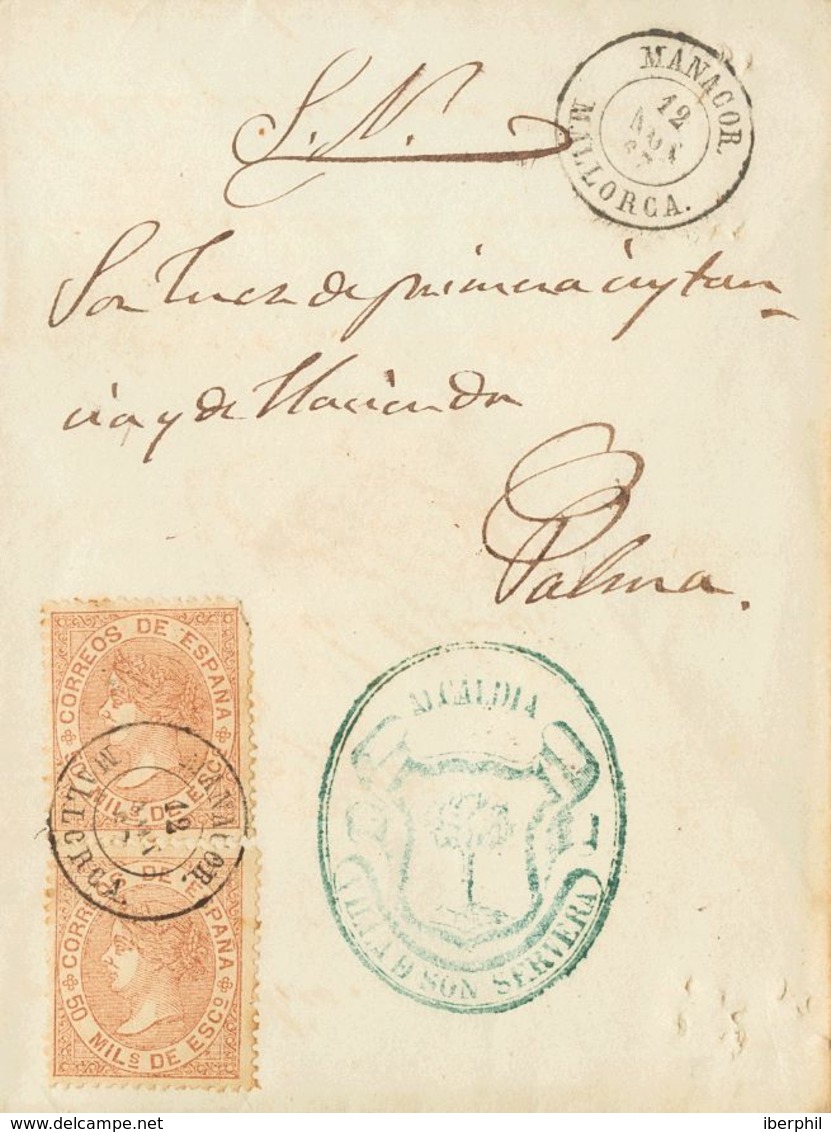 MANACOR.
12
AGO
67
MALLORCA.
S. N.
Sor Juez de primera instan-
cia y de Hacienda
Palma.
CORREOS DE ESPAÑA
MILS DE ESCO
MANACOR.
12
MALLORCA.
CORREOS DE ESPAÑA
50 MILS DE ESCO
ALCALDIA
VILLA D SON SERVERA
www.delcampe.net
iberphil